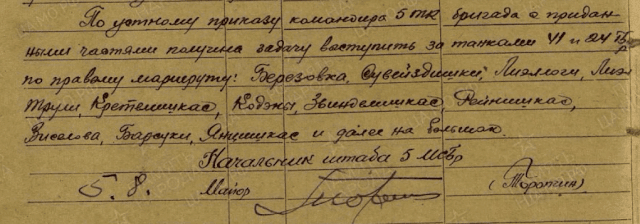 По устному приказу командира 5 тк бригада с придан-
ными частями получила задачу выступить за танками 41 и 24 тбр
по правому маршруту: Березовка,
Кретешишкас, Кодэны, Звинделишкас, Рейнишкас,
Барсуки, Янишкас и далее на большак.
Начальник штаба 5 мсбр
5. 8. Майор (Торопкин)